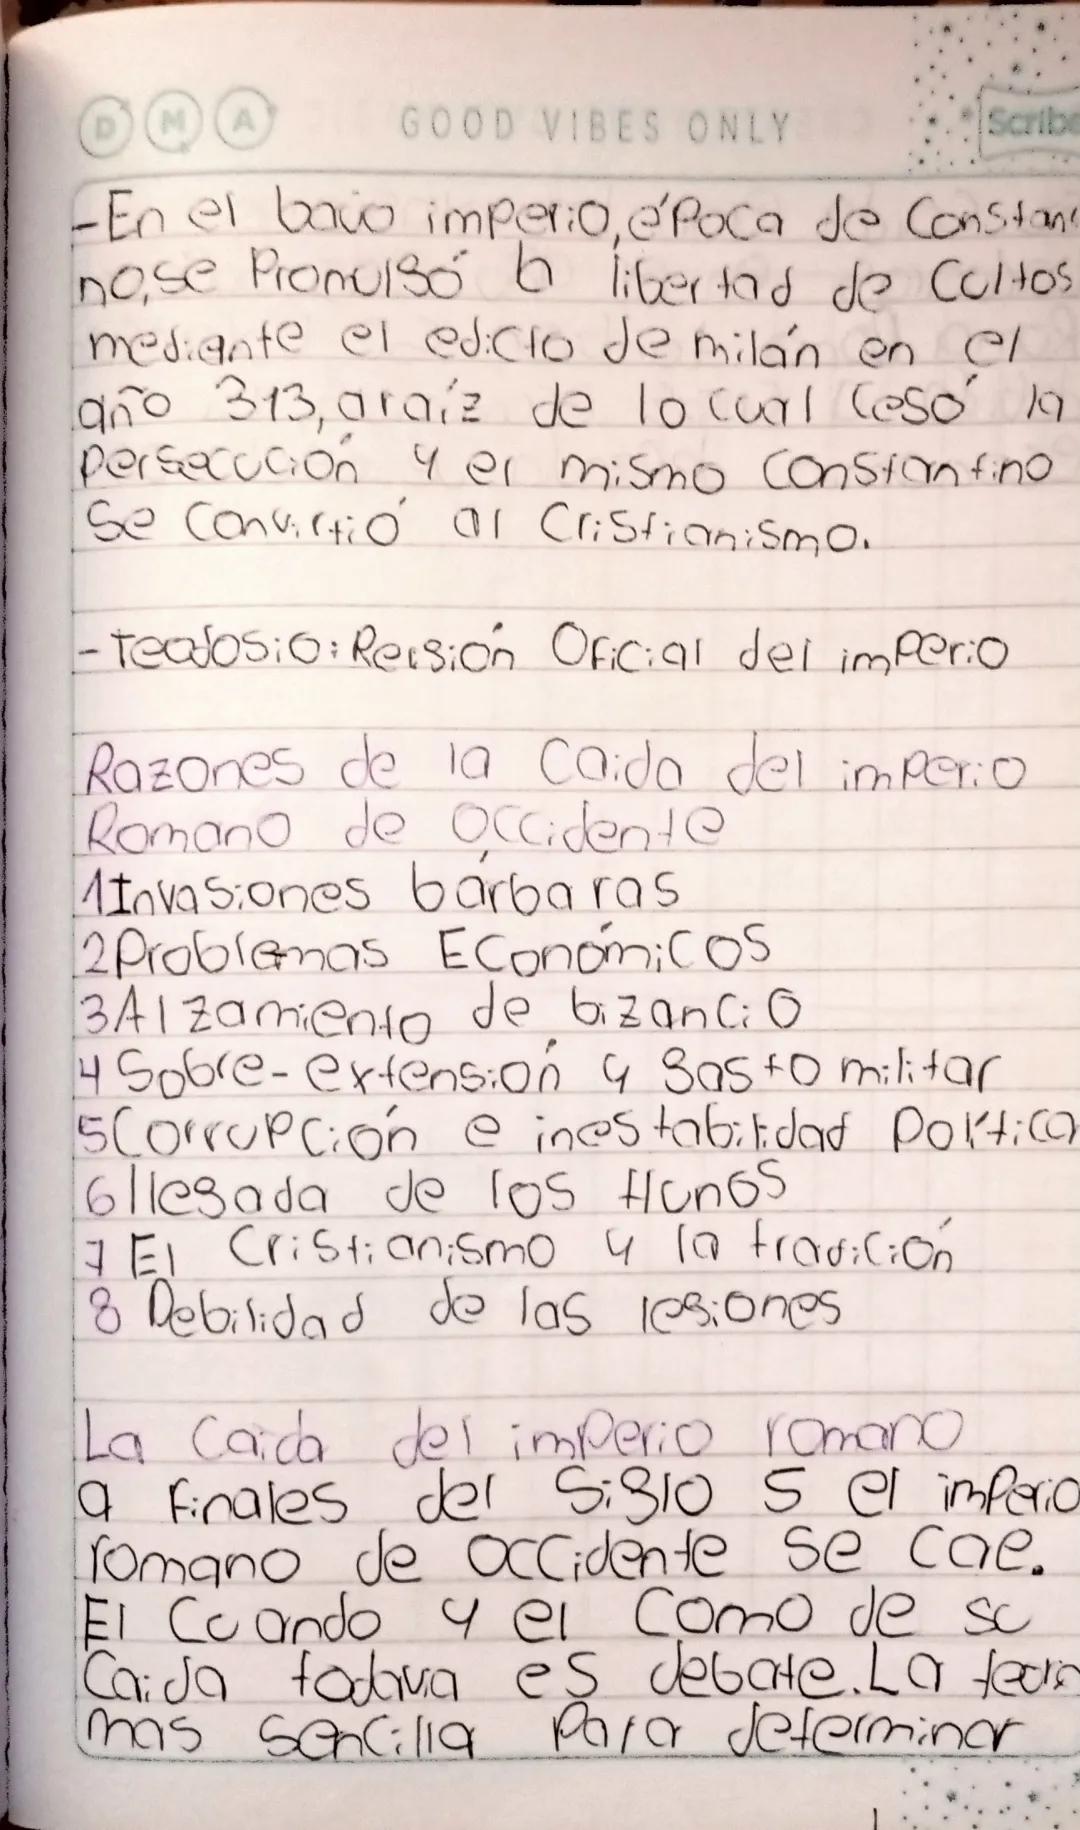 D M A GOOD VIBES ONLY Scribe
-En el bajo imperio, época de Constan
no, se Promulgó la libertad de Cultos
mediante el edicto de milán en el
año 313, araíz de lo cual Cesó la
Persecución y el mismo Constantino
Se Convirtió al Cristianismo.
-Teodosio: Religión Oficial del imperio
Razones de la Caida del imperio
Romano de Occidente
1 Invasiones bárbaras
2 Problemas Económicos
3 Alzamiento de bizancio
4 Sobre-extensión y gasto militar
5 Corrupción e inestabilidad Política
6 llegada de los Hunos
7 El Cristianismo y la tradición
8 Debilidad de las legiones
La Caida del imperio romano
a finales del Siglo 5 el imperio
romano de Occidente se cae.
El Cuando y el Como de su
Caida todavia es debate. La teoria
mas sencilla Para determinar